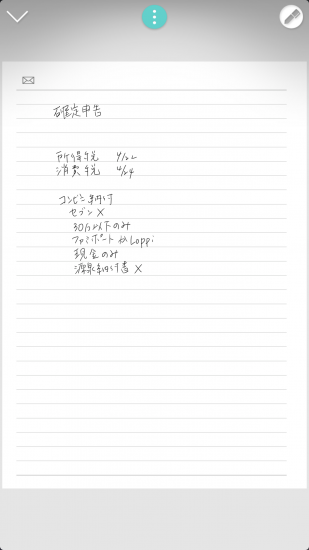 確定申告
所得税 4/22
消費税 4/24
コンビニ納付
セブン×
30万以下のみ
ファミポートかLoppi
現金のみ
源泉納付書×